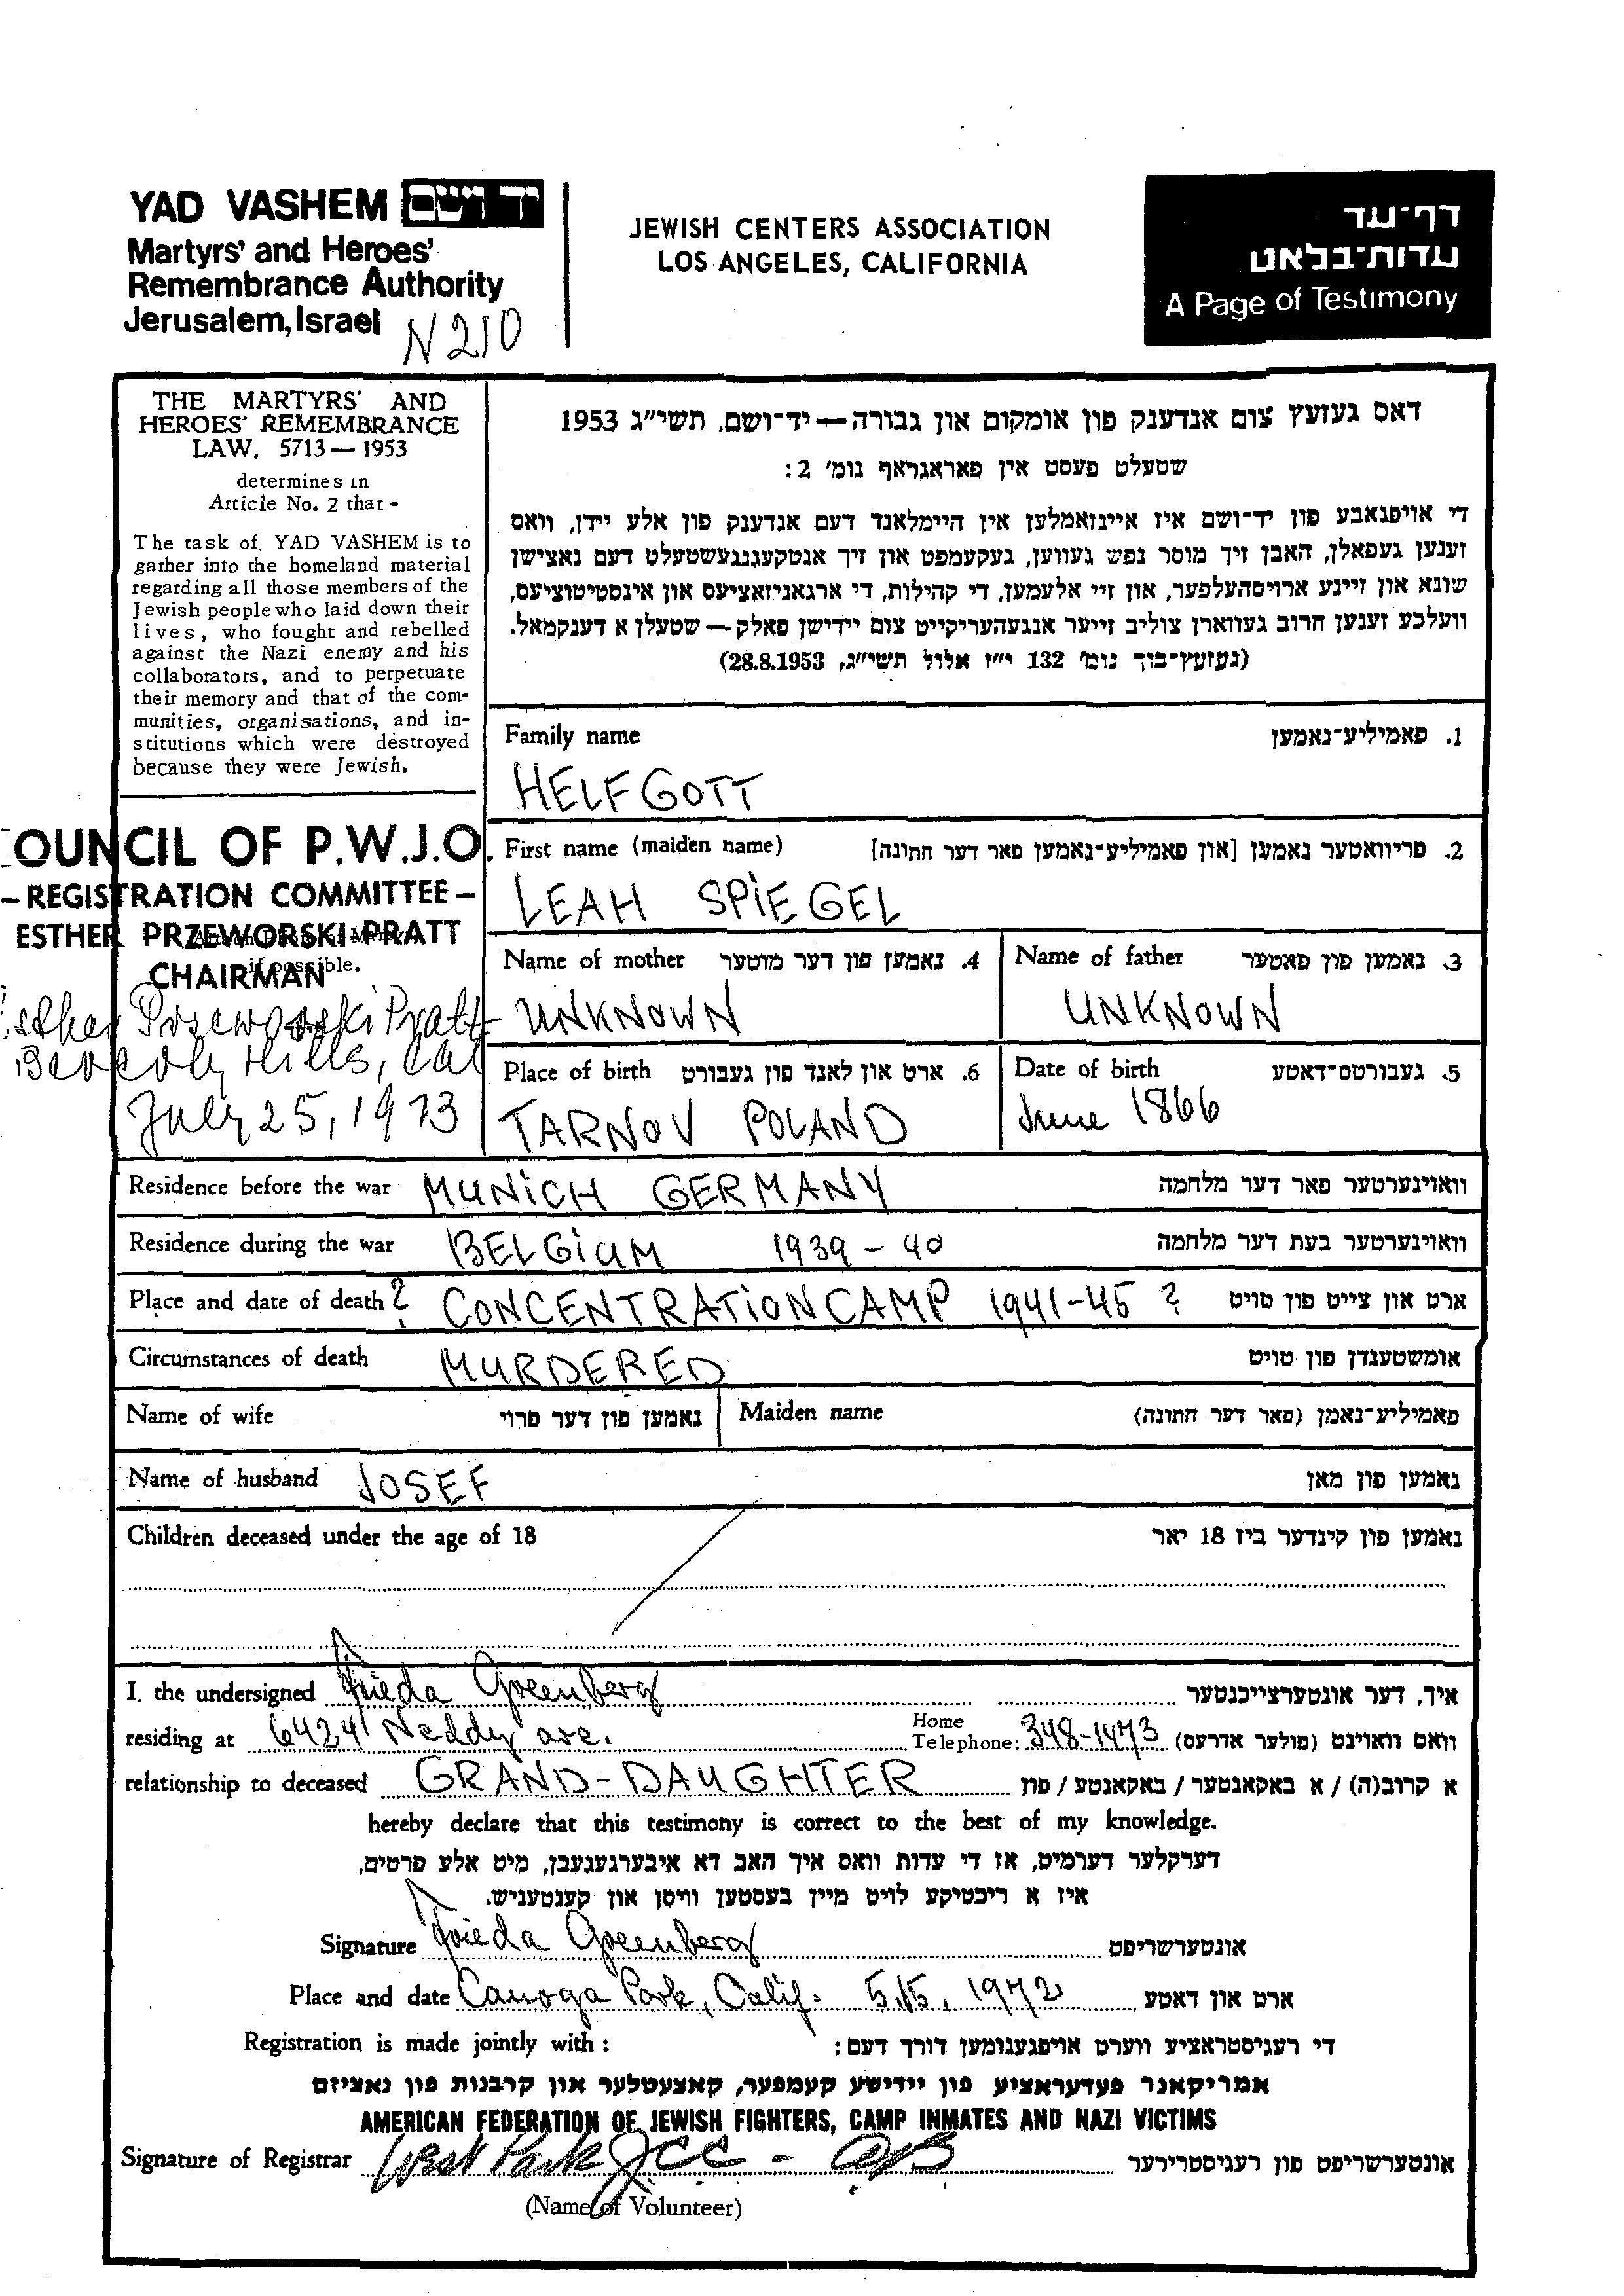 YAD VASHEM יד ושם
Martyrs' and Heroes'
Remembrance Authority
Jerusalem, Israel
N 210
JEWISH CENTERS ASSOCIATION
LOS ANGELES, CALIFORNIA
דף-עד
עדות-בלאט
A Page of Testimony
THE MARTYRS' AND
HEROES' REMEMBRANCE
LAW. 5713 — 1953
determines in
Article No. 2 that -
The task of YAD VASHEM is to
gather into the homeland material
regarding all those members of the
Jewish people who laid down their
lives, who fought and rebelled
against the Nazi enemy and his
collaborators, and to perpetuate
their memory and that of the com-
munities, organisations, and in-
stitutions which were destroyed
because they were Jewish.
דאס געזעץ צום אנדענק פון אומקום און גבורה — יד-ושם, תשי"ג 1953
שטעלט פעסט אין פאראגראף נומ' 2:
די אויפגאבע פון יד-ושם איז איינזאמלען אין היימלאנד דעם אנדענק פון אלע יידן, וואס
זענען געפאלן, האבן זיך מוסר נפש געווען, געקעמפט און זיך אנטקעגנגעשטעלט דעם נאצישן
שונא און זיינע ארויסהעלפער, און זיי אלעמען, די קהילות, די ארגאניזאציעס און אינסטיטוציעס,
וועלכע זענען חרוב געווארן צוליב זייער אנגעהעריקייט צום יידישן פאלק — שטעלן א דענקמאל.
(געזעץ-בוך נומ' 132 י"ז אלול תשי"ג, 28.8.1953)
OUNCIL OF P.W.J.O.
– REGISTRATION COMMITTEE –
ESTHER PRZEWORSKI PRATT
if possible.
CHAIRMAN
Esther Przeworski Pratt
Beverly Hills, Cal
July 25, 1973
Family name 1. פאמיליע-נאמען
HELFGOTT
First name (maiden name) 2. פריוואטער נאמען [און פאמיליע-נאמען פאר דער חתונה]
LEAH SPIEGEL
Name of mother 4. נאמען פון דער מוטער Name of father 3. נאמען פון פאטער
UNKNOWN UNKNOWN
Place of birth 6. ארט און לאנד פון געבורט Date of birth 5. געבורטס-דאטע
TARNOV POLAND June 1866
Residence before the war MUNICH GERMANY וואוינערטער פאר דער מלחמה
Residence during the war BELGIUM 1939 – 40 וואוינערטער בעת דער מלחמה
Place and date of death ? CONCENTRATION CAMP 1941-45 ? ארט און צייט פון טויט
Circumstances of death MURDERED אומשטענדן פון טויט
Name of wife נאמען פון דער פרוי Maiden name פאמיליע-נאמן (פאר דער חתונה)
Name of husband JOSEF נאמען פון מאן
Children deceased under the age of 18 נאמען פון קינדער ביז 18 יאר
I, the undersigned Frieda Greenberg איך, דער אונטערצייכנטער
residing at 6424 Neddy ave. Home Telephone: 348-1473 וואס וואוינט (פולער אדרעס)
relationship to deceased GRAND-DAUGHTER א קרוב(ה) / א באקאנטער / באקאנטע / פון
hereby declare that this testimony is correct to the best of my knowledge.
דערקלער דערמיט, אז די עדות וואס איך האב דא איבערגעגעבן, מיט אלע פרטים,
איז א ריכטיקע לויט מיין בעסטען וויסן און קענטעניש.
Signature Frieda Greenberg אונטערשריפט
Place and date Canoga Park, Calif. 5.15. 1972 ארט און דאטע
Registration is made jointly with : די רעגיסטראציע ווערט אויפגענומען דורך דעם:
אמריקאנר פעדעראציע פון יידישע קעמפער, קאצעטלער און קרבנות פון נאציזם
AMERICAN FEDERATION OF JEWISH FIGHTERS, CAMP INMATES AND NAZI VICTIMS
Signature of Registrar West Park JCC - אונטערשריפט פון רעגיסטרירער
(Name of Volunteer)